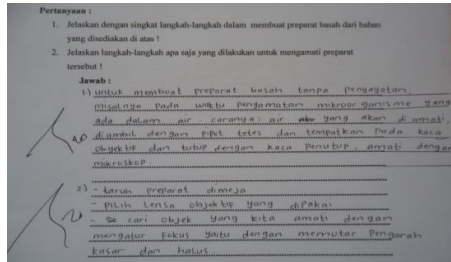 Pertanyaan :
1. Jelaskan dengan singkat langkah-langkah dalam membuat preparat basah dari bahan
yang disediakan di atas !
2. Jelaskan langkah-langkah apa saja yang dilakukan untuk mengamati preparat
tersebut !
Jawab :
1.) untuk membuat preparat basah tanpa penyayatan,
misalnya pada waktu pengamatan mikroorganisme yang
ada dalam air. caranya: air yang akan di amati,
diambil dengan pipet tetes dan tempatkan pada kaca
objektif dan tutup dengan kaca penutup, amati dengan
mikroskop.
2) - taruh preparat dimeja
- pilih lensa objektif yang dipakai
- cari objek yang kita amati dengan
mengatur fokus yaitu dengan memutar pengarah
kasar dan halus.